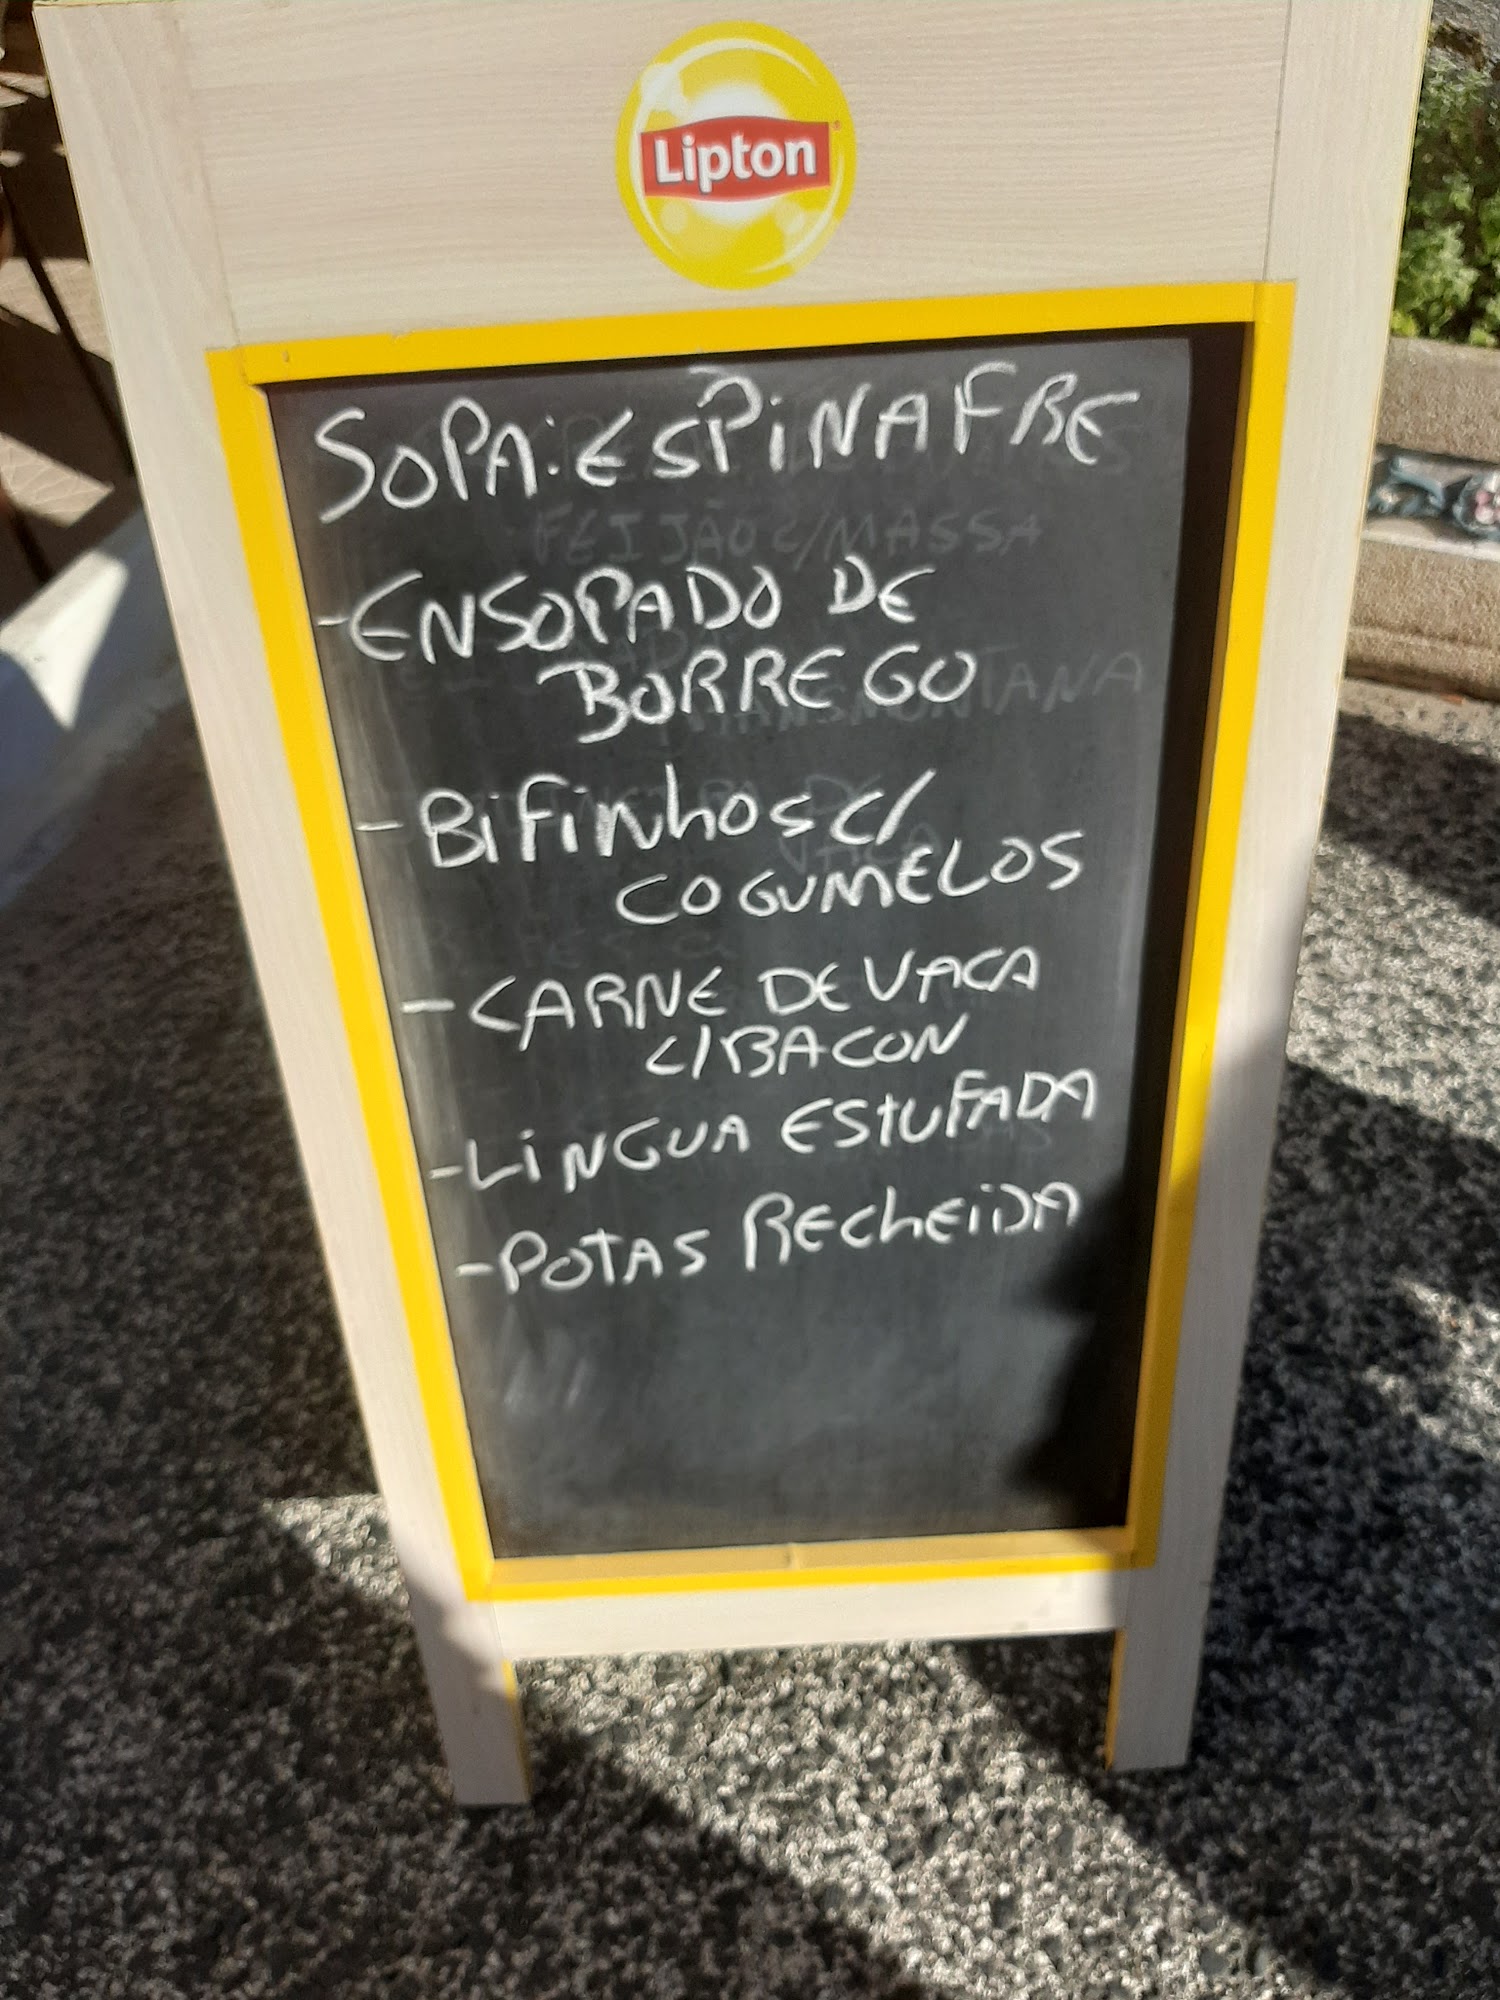 Lipton
SOPA: ESPINAFRE
FEIJÃO C/MASSA
-ENSOPADO DE
BORREGO
-BIFINHOS C/
COGUMELOS
-CARNE DE VACA
C/BACON
-LINGUA ESTUFADA
-POTAS RECHEIDA